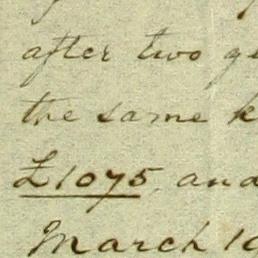 after two
the same
£1075, and
March